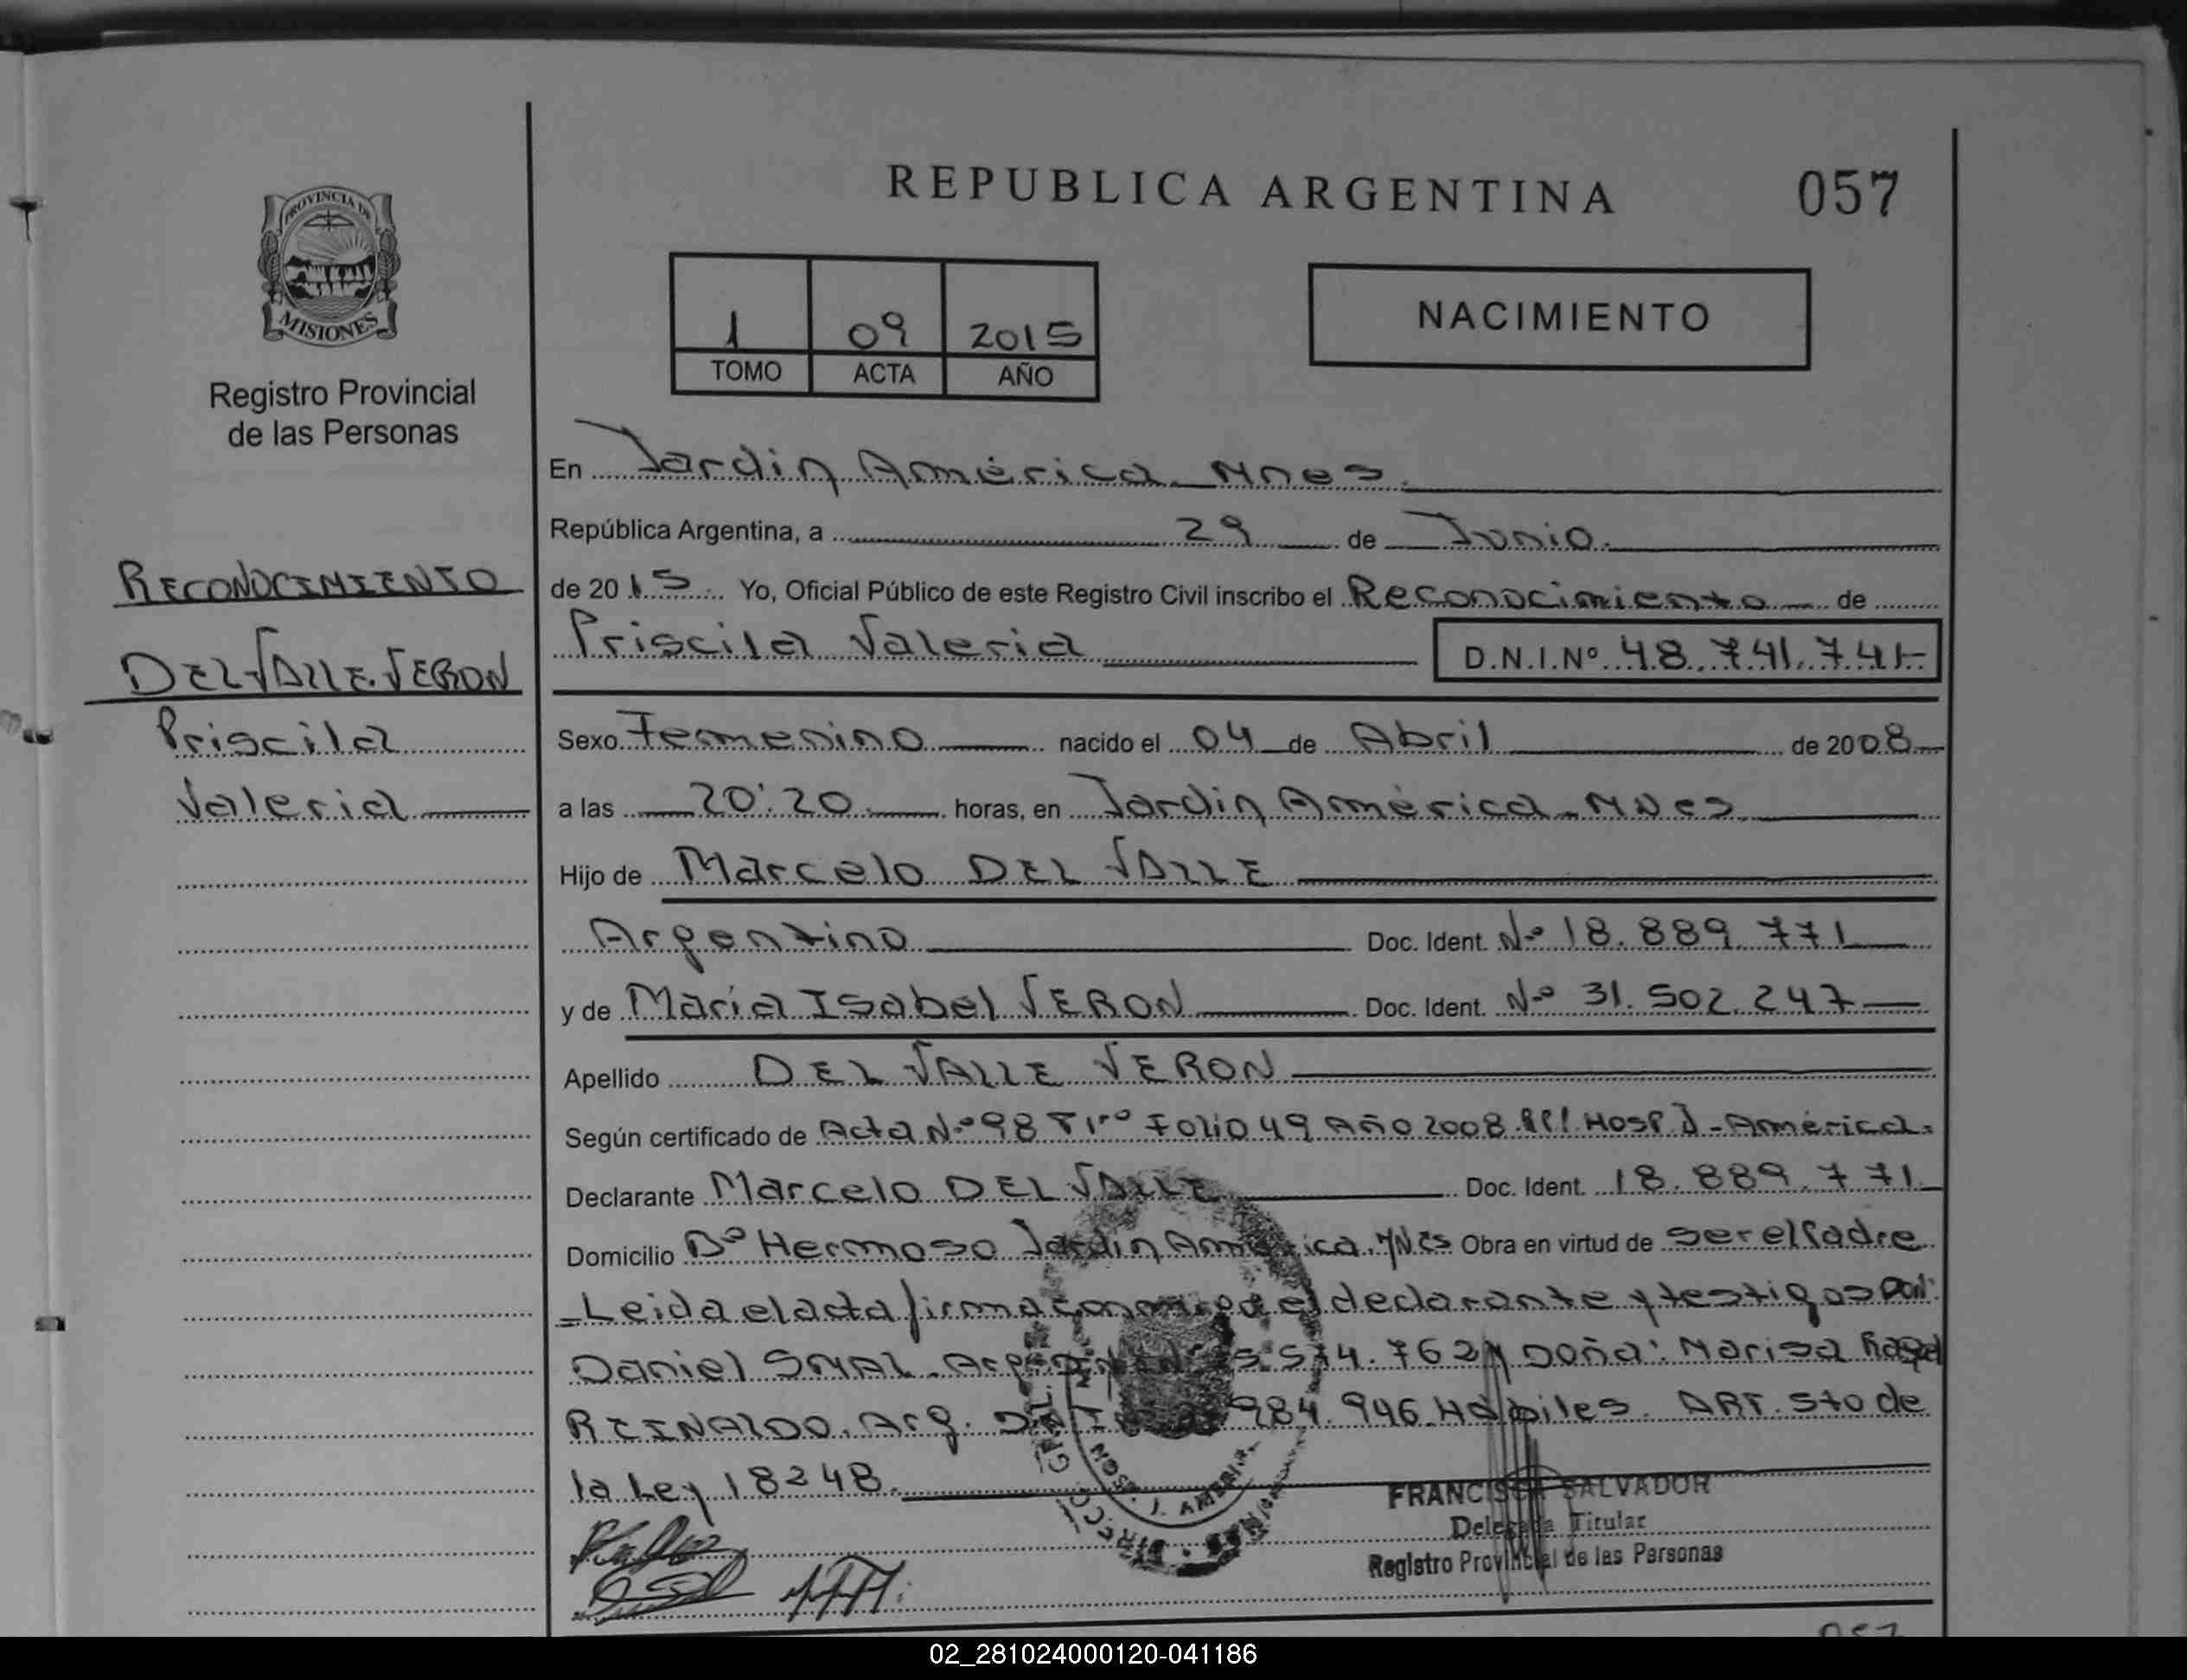 REPUBLICA ARGENTINA
057
PROVINCIA DE
MISIONES
Registro Provincial
de las Personas
1 09 2015
TOMO ACTA AÑO
NACIMIENTO
En Jardin América Mnes.
República Argentina, a 29 de Junio.
RECONOCIMIENTO
de 2015 Yo, Oficial Público de este Registro Civil inscribo el Reconocimiento de
Priscila Valeria D.N.I.Nº 48.741.741-
DEL VALLE VERON
Priscila
Valeria
Sexo Femenino nacido el 04 de Abril de 2008
a las 20:20 horas, en Jardin América-MNes.
Hijo de Marcelo DEL VALLE
Argentino Doc. Ident. Nº 18.889.771
y de María Isabel VERON Doc. Ident. Nº 31.502.247
Apellido DEL VALLE VERON
Según certificado de Acta Nº 98 Tº 1º Folio 49 Año 2008 Hosp J-América.
Declarante Marcelo DEL VALLE Doc. Ident. 18.889.771
Domicilio Bº Hermoso Jardin América. MNes Obra en virtud de ser el Padre
=Leida el acta firma conmigo el declarante y testigos Don:
Daniel SMAL. 574.762 y Doña: Marisa
REINALDO. Arg. 984.946 Hábiles. ART. 5to de
la Ley 18248.
HOSP. J. AMERICA
FRANCISCA SALVADOR
Delegada Titular
Registro Provincial de las Personas
02_281024000120-041186